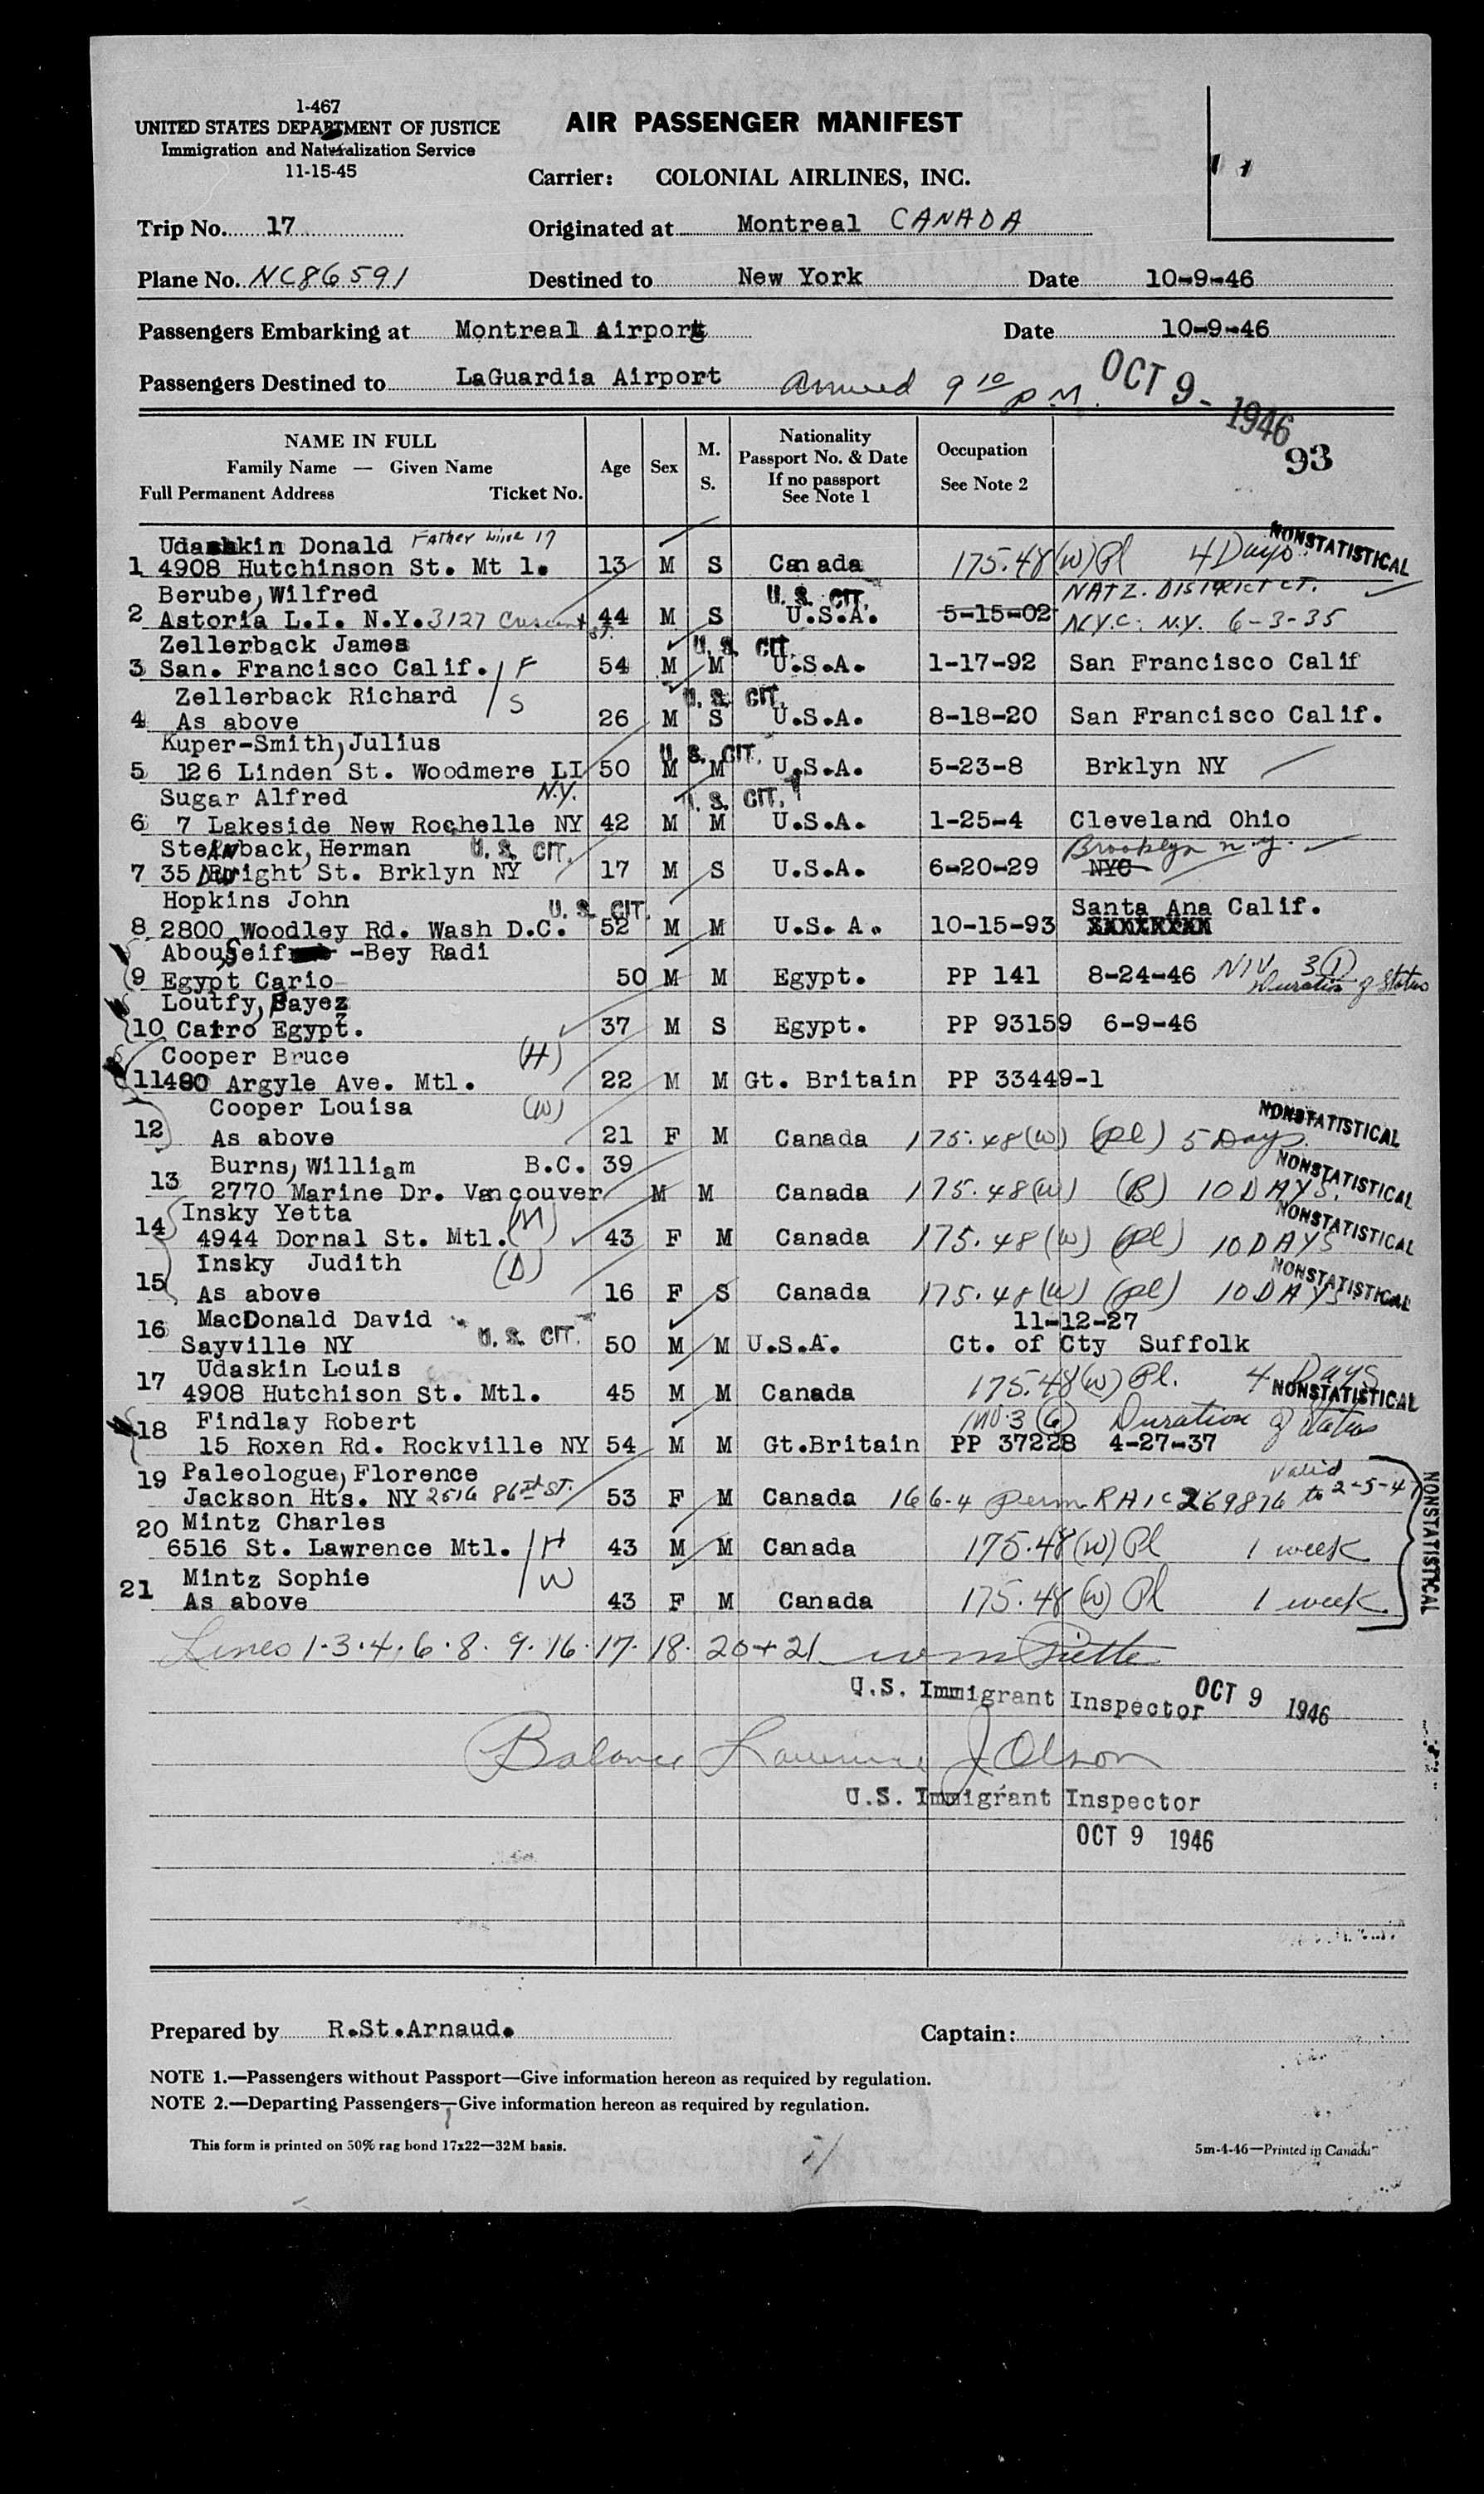 1-467
UNITED STATES DEPARTMENT OF JUSTICE
Immigration and Naturalization Service
11-15-45
AIR PASSENGER MANIFEST
Carrier: COLONIAL AIRLINES, INC.
Trip No. 17
Originated at Montreal CANADA
Plane No. NC86591
Destined to New York Date 10-9-46
Passengers Embarking at Montreal Airport Date 10-9-46
Passengers Destined to LaGuardia Airport Arrived 9 10 P.M. OCT 9 - 1946
93
NAME IN FULL
Family Name — Given Name
Full Permanent Address Ticket No.
Age
Sex
M. S.
Nationality
Passport No. & Date
If no passport
See Note 1
Occupation
See Note 2
Udashkin Donald Father line 17 NONSTATISTICAL
1 4908 Hutchinson St. Mt l. 13 M S Canada 175.48(W) Pl 4 Days
Berube, Wilfred U.S. CIT. NATZ. DISTRICT CT.
2 Astoria L.I. N.Y. 3127 Crescent St. 44 M S U.S.A. 5-15-02 N.Y.C. N.Y. 6-3-35
Zellerback James U.S. CIT.
3 San. Francisco Calif. F 54 M M U.S.A. 1-17-92 San Francisco Calif
Zellerback Richard S U.S. CIT.
4 As above 26 M S U.S.A. 8-18-20 San Francisco Calif.
Kuper-Smith, Julius U.S. CIT.
5 126 Linden St. Woodmere LI N.Y. 50 M M U.S.A. 5-23-8 Brklyn NY
Sugar Alfred U.S. CIT.
6 7 Lakeside New Rochelle NY 42 M M U.S.A. 1-25-4 Cleveland Ohio
Steinback, Herman U.S. CIT. Brooklyn N.Y.
7 35 Dwight St. Brklyn NY 17 M S U.S.A. 6-20-29 NYC
Hopkins John U.S. CIT. Santa Ana Calif.
8 2800 Woodley Rd. Wash D.C. 52 M M U.S. A. 10-15-93
AbouSeif -Bey Radi
9 Egypt Cario 50 M M Egypt. PP 141 8-24-46 NIV 3(1) Duration of Status
Loutfy, Fayez
10 Cairo Egypt. 37 M S Egypt. PP 93159 6-9-46
Cooper Bruce (H)
11 480 Argyle Ave. Mtl. 22 M M Gt. Britain PP 33449-1
Cooper Louisa (W) NONSTATISTICAL
12 As above 21 F M Canada 175.48(W) (Pl) 5 Days
Burns, William B.C. 39 NONSTATISTICAL
13 2770 Marine Dr. Vancouver M M Canada 175.48(W) (B) 10 DAYS.
Insky Yetta (M) NONSTATISTICAL
14 4944 Dornal St. Mtl. 43 F M Canada 175.48(W) (Pl) 10 DAYS
Insky Judith (D) NONSTATISTICAL
15 As above 16 F S Canada 175.48(W) (Pl) 10 DAYS
MacDonald David U.S. CIT. 11-12-27
16 Sayville NY 50 M M U.S.A. Ct. of Cty Suffolk
Udaskin Louis
17 4908 Hutchison St. Mtl. 45 M M Canada 175.48(W) Pl. 4 Days NONSTATISTICAL
Findlay Robert 3(6) Duration of Status
18 15 Roxen Rd. Rockville NY 54 M M Gt.Britain PP 37228 4-27-37
Paleologue, Florence Valid
19 Jackson Hts. NY 2516 86th ST. 53 F M Canada 166-4 perm RAIC 269876 to 2-5-47 NONSTATISTICAL
Mintz Charles
20 6516 St. Lawrence Mtl. H 43 M M Canada 175.48(W) Pl 1 week
Mintz Sophie W
21 As above 43 F M Canada 175.48(W) Pl 1 week
Lines 1-3-4, 6-8- 9-16-17-18- 20+21
U.S. Immigrant Inspector OCT 9 1946
Balance Lawrence J Olson
U.S. Immigrant Inspector
OCT 9 1946
Prepared by R.St.Arnaud.
Captain:
NOTE 1.—Passengers without Passport—Give information hereon as required by regulation.
NOTE 2.—Departing Passengers—Give information hereon as required by regulation.
This form is printed on 50% rag bond 17x22—32M basis.
5m-4-46—Printed in Canada